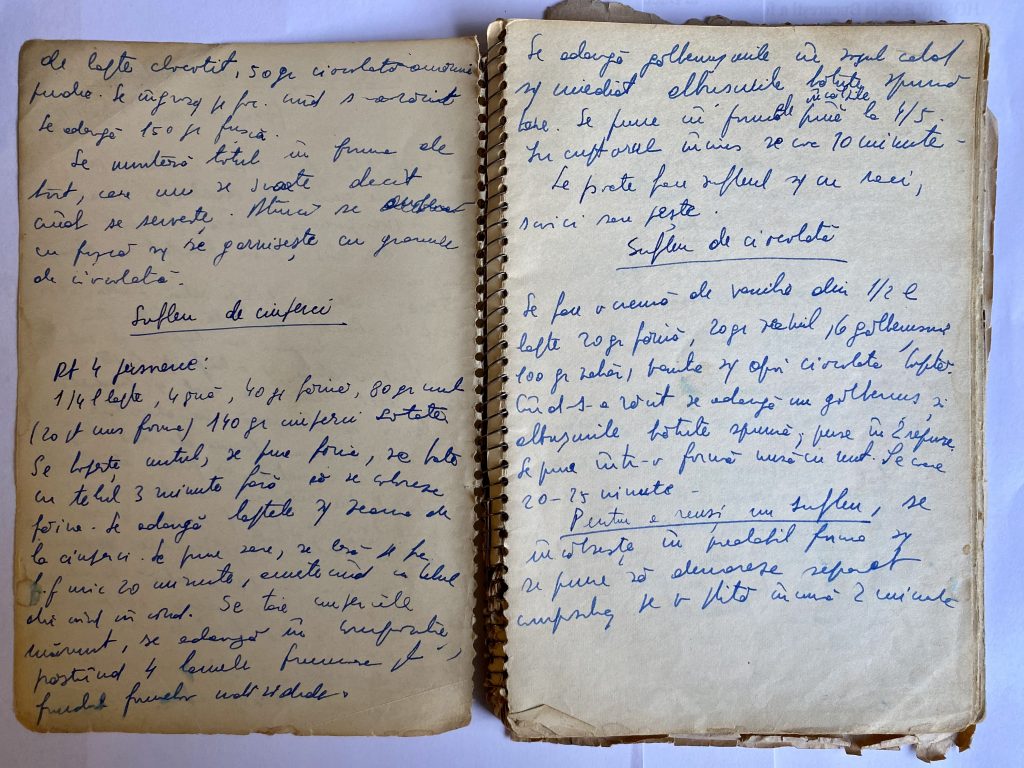 de lapte clocotit, 50 gr ciocolată
Se îngroașe pe foc. Cînd s-a răcit
Se adaugă 150 gr frișcă.
Se montează totul în forma de
tort, care nu se scoate decît
cînd se servește. Atunci se
cu frișcă și se garnisește cu granule
de ciocolată.
Sufleu de ciuperci
Pt 4 persoane:
1/4 l lapte, 4 ouă, 40 gr făină, 80 gr unt
(20 pt uns forma) 140 gr ciuperci sotate
Se topește untul, se pune făina, se bate
cu telul 3 minute fără să se coloreze
făina. Se adaugă laptele și zeama de
la ciuperci. Se pune sare, se lasă pe
f. mic 20 minute, amestecînd cu telul
din cînd în cînd. Se taie ciupercile
mărunt, se adaugă în compoziție,
postrînd 4 lamele frumoase pt
fundul formelor individuale.
Se adaugă gălbenușurile în sosul cald
și imediat albușurile bătute spumă
tare. Se pune în forme pînă la 4/5.
ele încălzite
În cuptorul încins se coc 10 minute -
Se poate face sufleul și cu raci,
sau pește.
Sufleu de ciocolată
Se face o cremă de vanilie din 1/2 l
lapte 20 gr făină, 20 gr 6 gălbenușuri
100 gr zahăr, vanilie și apoi ciocolata
Cînd s-a răcit se adaugă un gălbenuș și
albușurile bătute spumă; puse în 2 reprize.
Se pune într-o formă unsă cu unt. Se coace
20-25 minute -
Pentru a reuși un sufleu, se
încălzește în prealabil forma și
se pune să demareze separat
pe o plită încinsă 2 minute